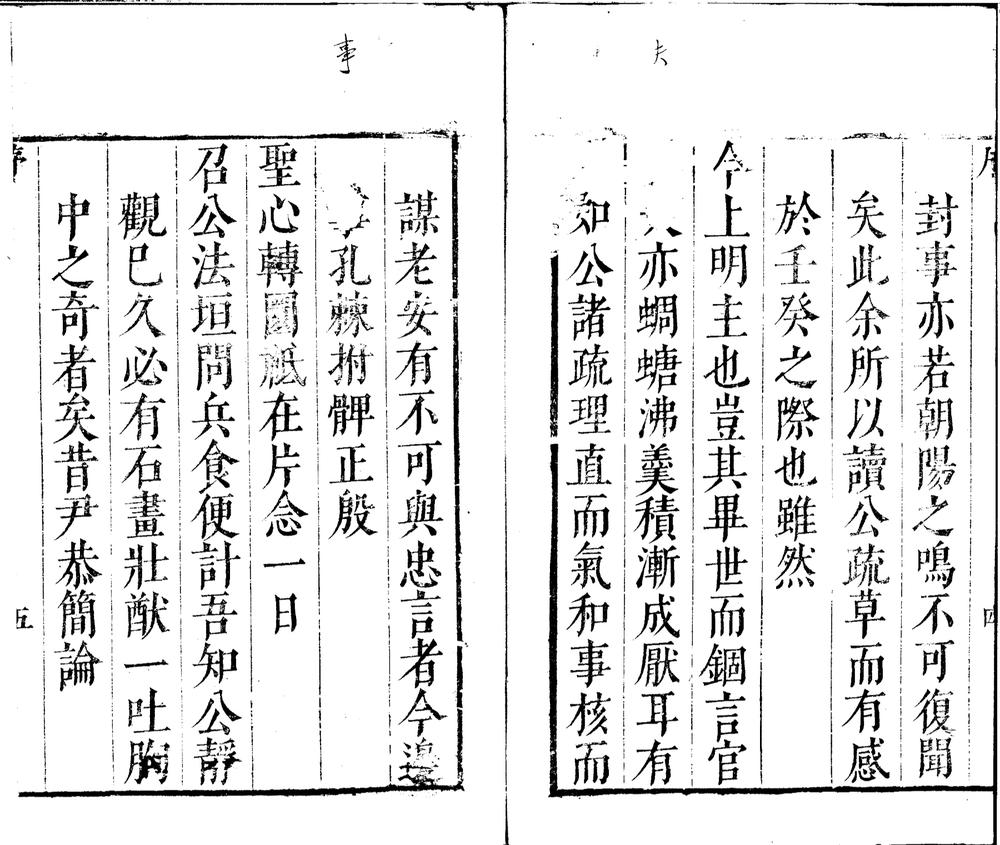 夫
封事亦若朝陽之鳴不可復聞
矣此余所以讀公疏草而有感
於壬癸之際也雖然
今上明主也豈其畢世而錮言官
亦蜩螗沸羹積漸成厭耳有
如公諸疏理直而氣和事核而
四
事
謀老安有不可與忠言者今邊
孔棘拊髀正殷
聖心轉圜祗在片念一日
召公法垣問兵食便計吾知公靜
觀已久必有石畫壯猷一吐胸
中之奇者矣昔尹恭簡論
序
五